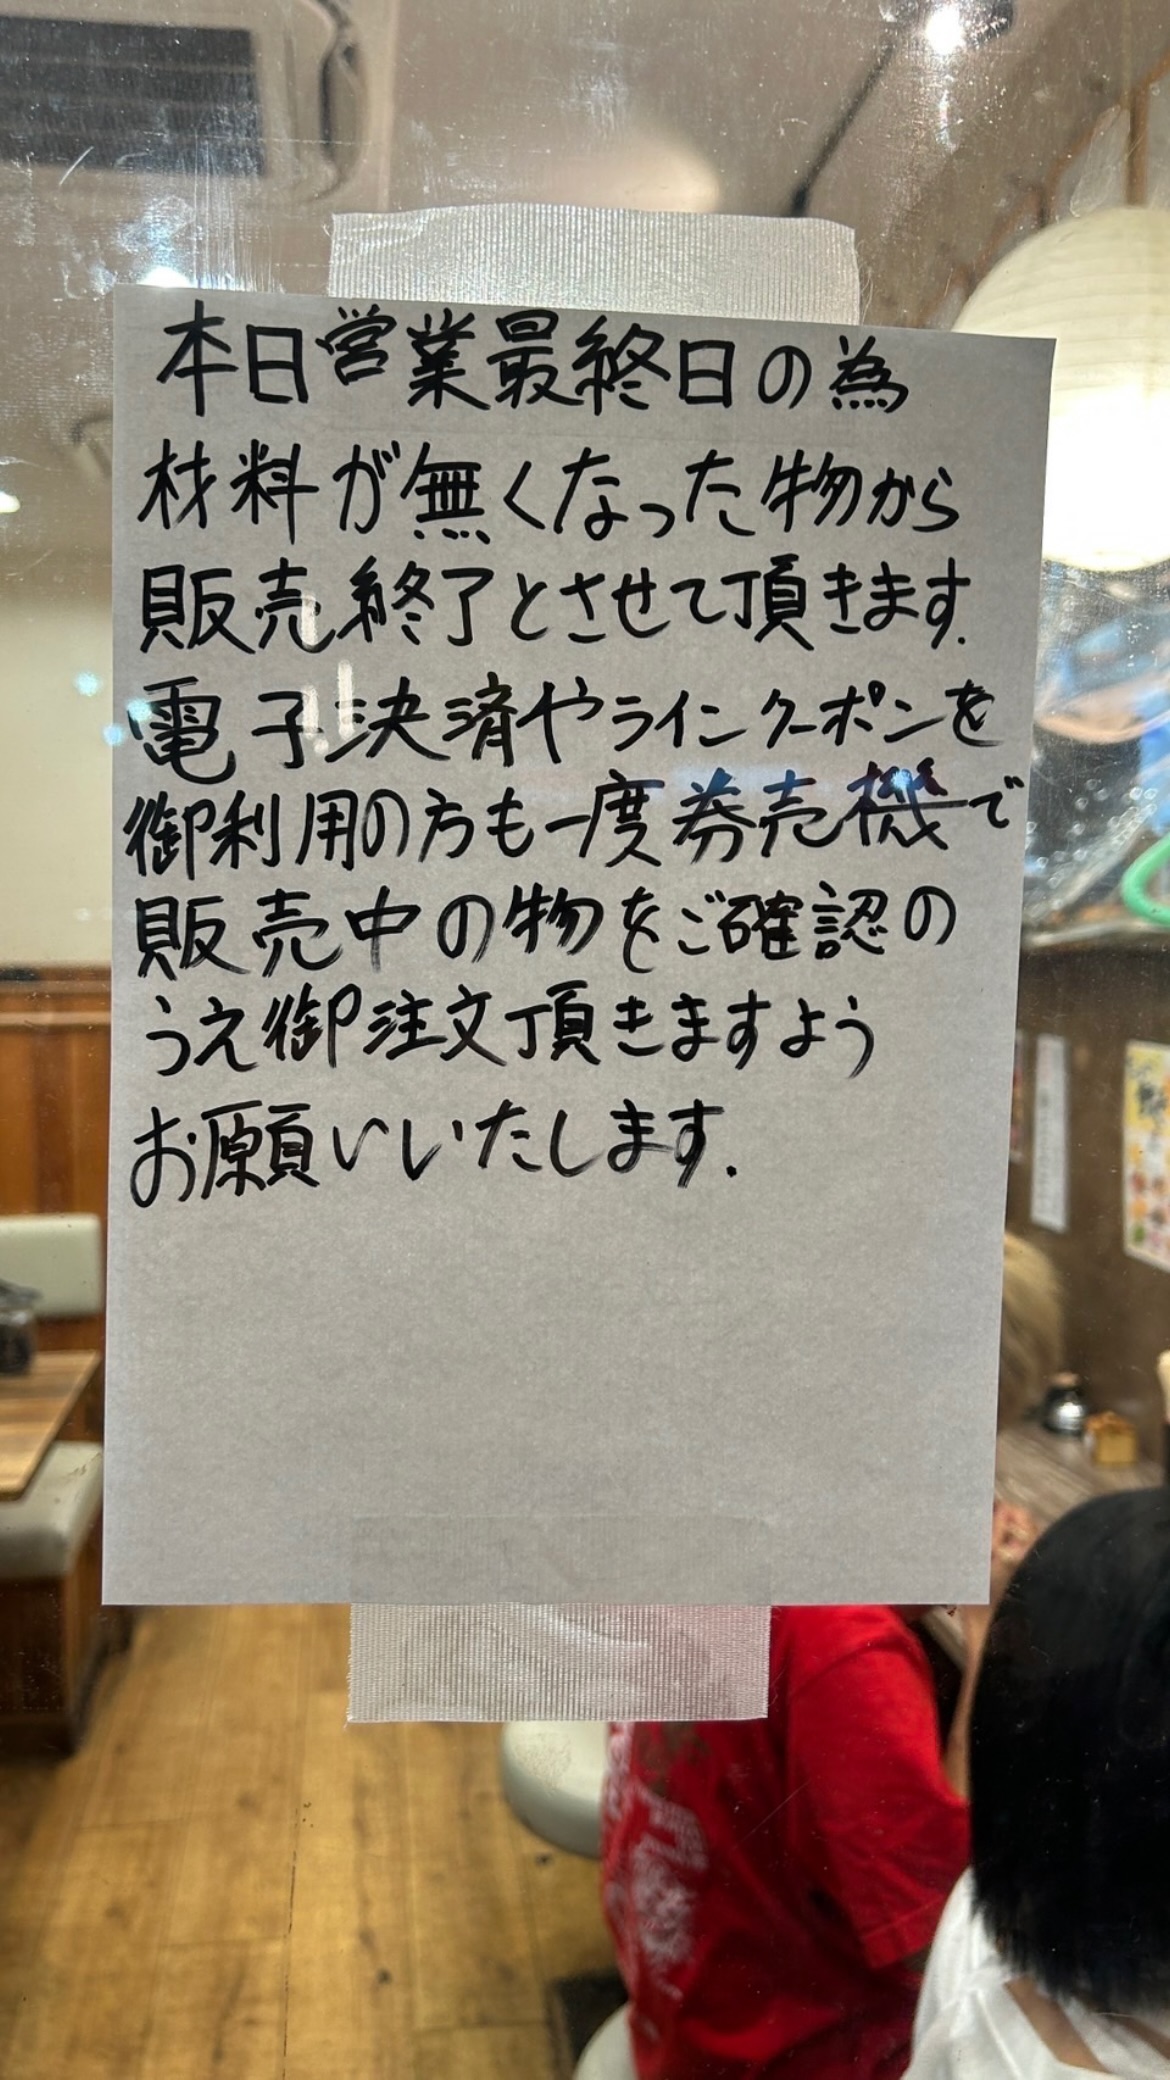 本日営業最終日の為
材料が無くなった物から
販売終了とさせて頂きます.
電子決済やラインクーポンを
御利用の方も一度券売機で
販売中の物をご確認の
うえ御注文頂きますよう
お願いいたします.